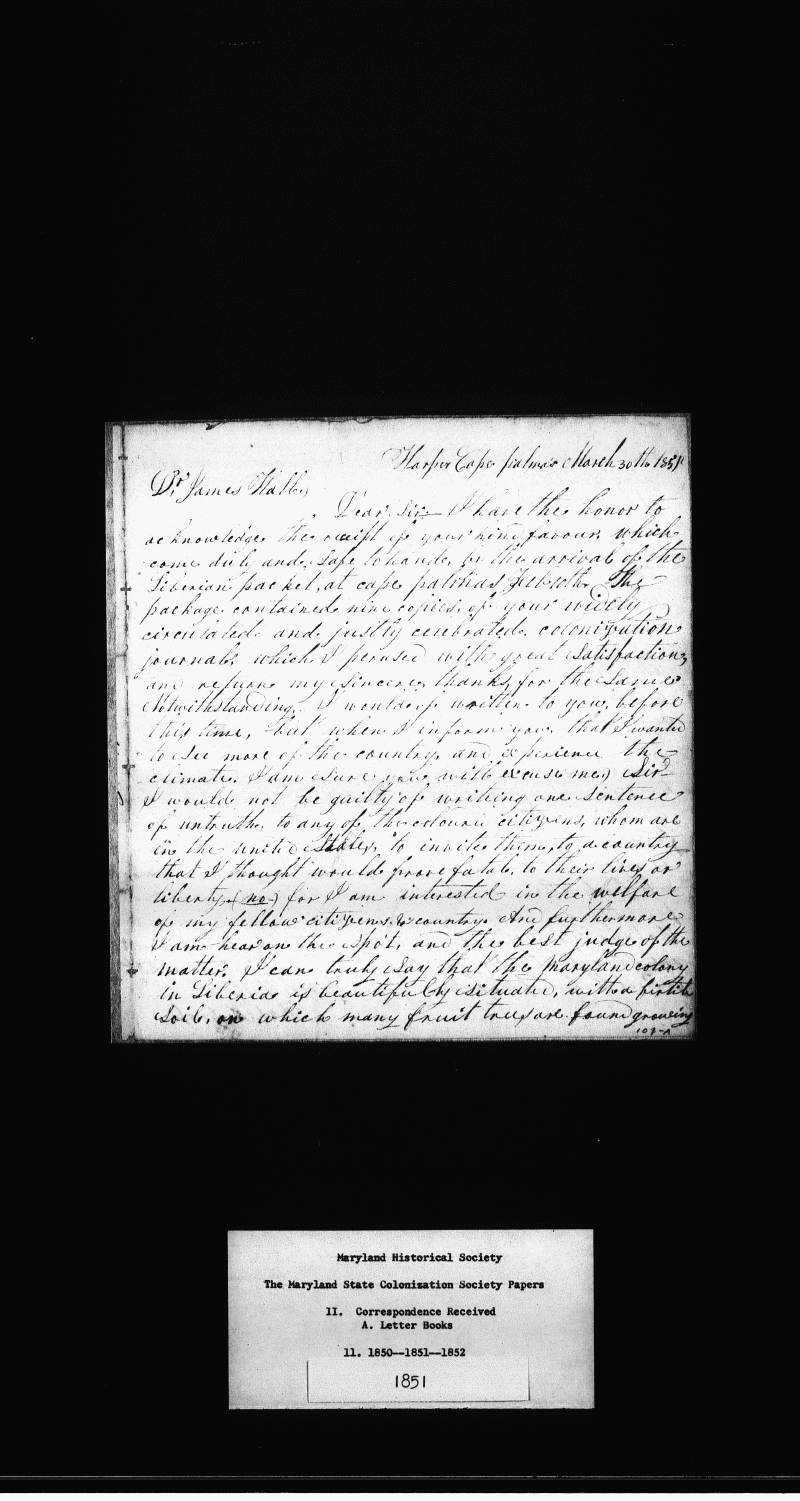 Harper Cape palmas March 30th 1851
Dr. James Hall,
Dear, Sir I have the honor to
acknowledge the receipt of your kind favour, which
come duly and safe to hand, by the arrival of the
Liberian packet, at cape palmas The
package contained nine copies, of your widely
circulated and justly celebrated colonization
journal, which I perused with great satisfaction,
and return my sincere thanks, for the same
Notwithstanding, I would of written to you, before
this time, but when I inform you that I wanted
to see more of the country, and experience the
climate, I am sure you will excuse me, Sir
I would not be guilty of writing one sentence
of untruth, to any of the colourd citizens, whom are
in the united States, to invite them, to a country
that I thought would prove fatal, to their lives or
liberty, (no) for I am interested in the welfare
of my fellow citizens & country. And furthermore
I am hear on the spot, and the best judge of the
matter. I can truly say that the maryland colony
in Liberia is beautifully situated, with a firtile
soil, on which many fruit trees are found growing
109-A
Maryland Historical Society
The Maryland State Colonization Society Papers
II. Correspondence Received
A. Letter Books
11. 1850--1851--1852
1851